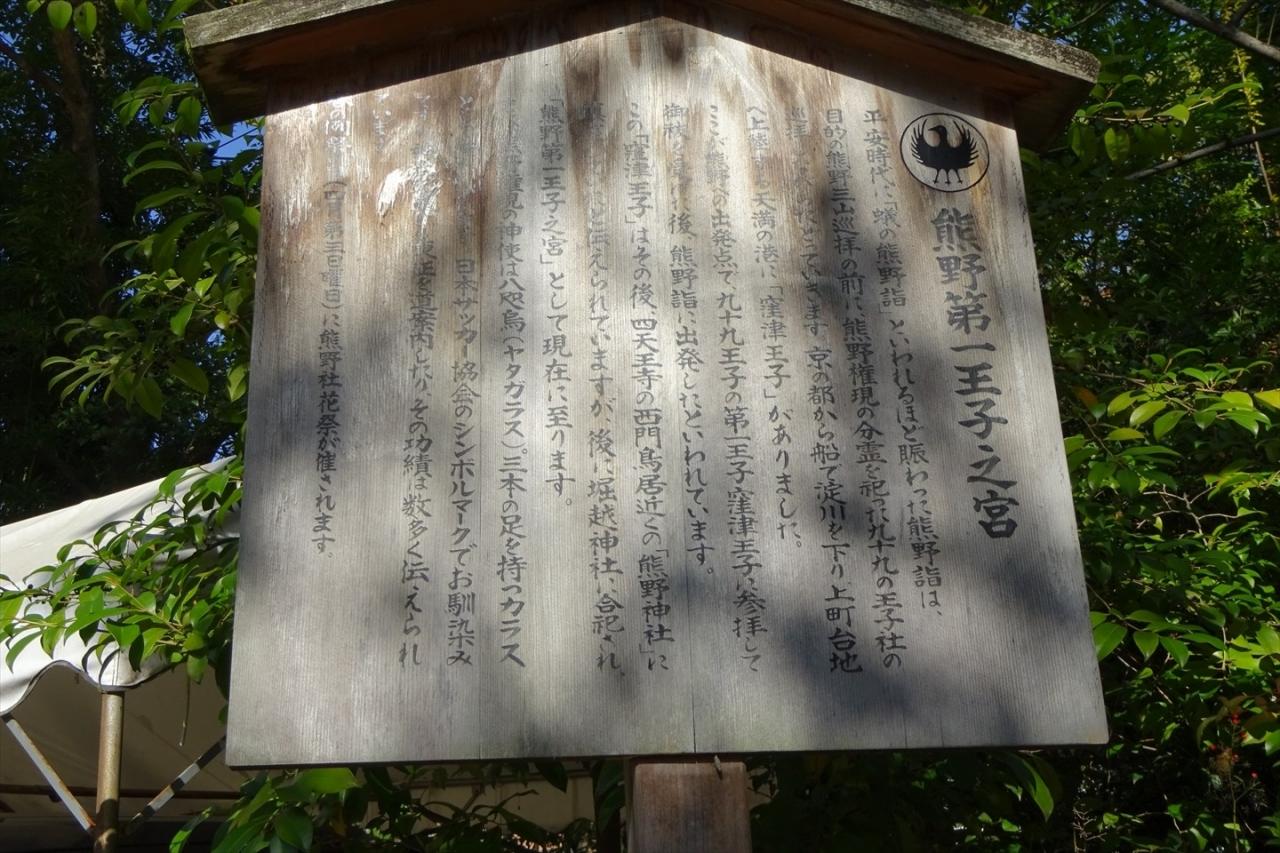 熊野第一王子之宮
平安時代に「蟻の熊野詣」といわれるほど賑わった熊野詣は、
目的の熊野三山巡拝の前に、熊野権現の分霊を祀った九十九の王子社の
巡拝 ていきます。京の都から船で淀川を下り上町台地
へ上陸する天満の港に「窪津王子」がありました。
ここが熊野への出発点で、九十九王子の第一王子窪津王子に参拝して
御祓 後、熊野詣に出発したといわれています。
この「窪津王子」はその後、四天王寺の西門鳥居近くの「熊野神社」に
と伝えられていますが、後に堀越神社に合祀され、
「熊野第一王子之宮」として現在に至ります。
権現の神使は八咫烏(ヤタガラス)。三本の足を持つカラス
と 日本サッカー協会のシンボルマークでお馴染み
を道案内したり、その功績は数多く伝えられ
います。
(四月第三日曜日)に熊野社花祭が催されます。